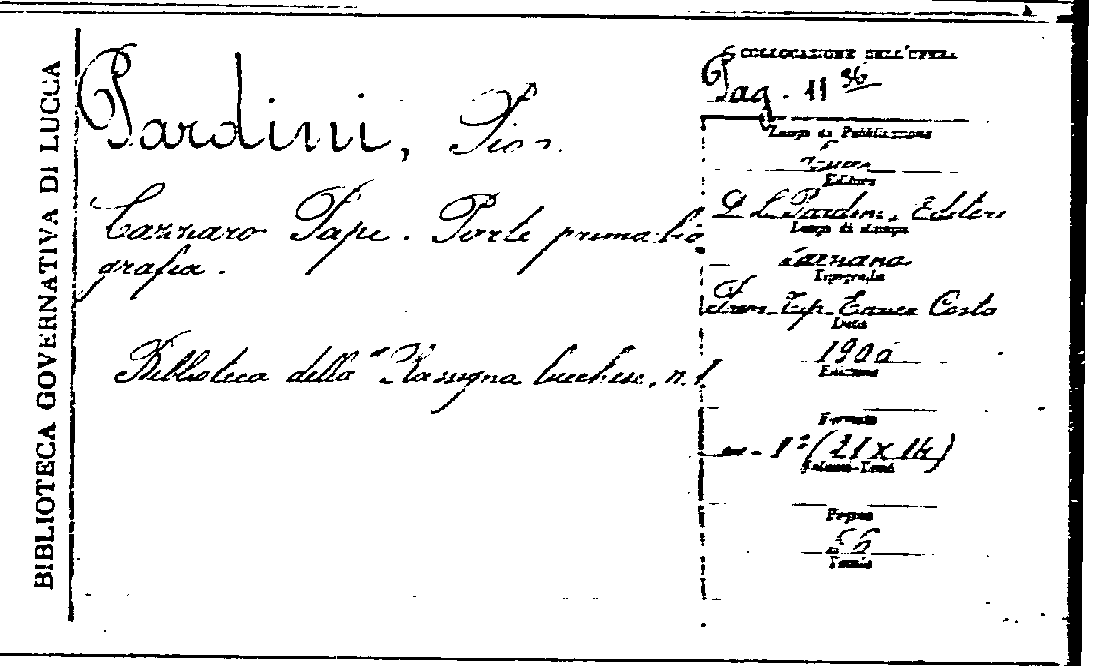 BIBLIOTECA GOVERNATIVA DI LUCCA
Pardini, Pio.
Lazzaro Papi. Parte prima: bio
grafia.
Biblioteca della "Rassegna lucchese, n. 1
COLLOCAZIONE DELL'OPERA
Pag. 11 36
Luogo di Pubblicazione
Lucca
Editore
D. L. Pardini, Editore
Luogo di stampa
Sarzana
Tipografia
Prem. Tip. Enrico Costa
Data
190
Edizione
Formato
(21 x 14)
Volume-Tomi
Pagine
56
Tavole